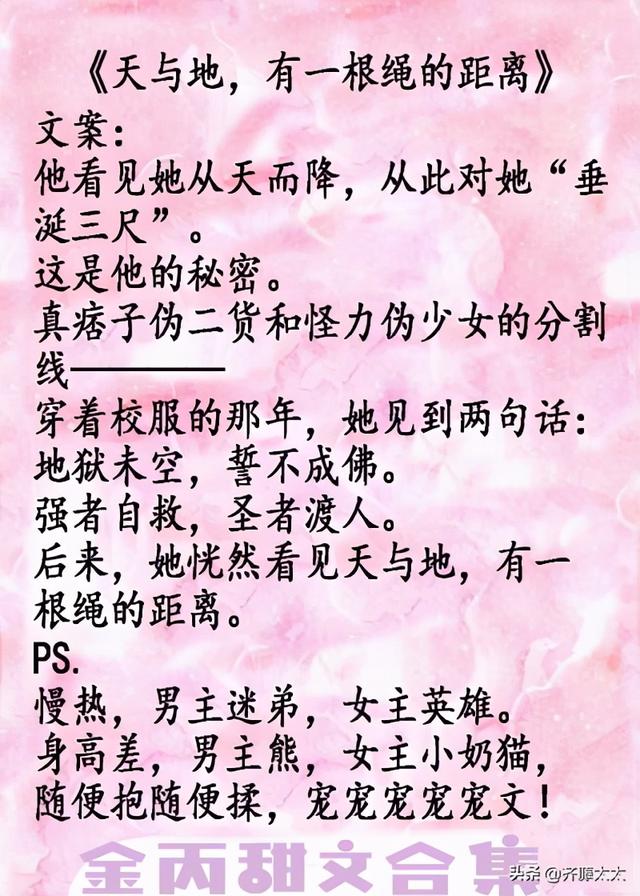 《天与地，有一根绳的距离》
文案：
他看见她从天而降，从此对她“垂
涎三尺”。
这是他的秘密。
真痞子伪二货和怪力伪少女的分割
线————
穿着校服的那年，她见到两句话：
地狱未空，誓不成佛。
强者自救，圣者渡人。
后来，她恍然看见天与地，有一
根绳的距离。
PS.
慢热，男主迷弟，女主英雄。
身高差，男主熊，女主小奶猫，
随便抱随便揉，宠宠宠宠宠文！
金丙甜文合集
头条 @齐嫄太太